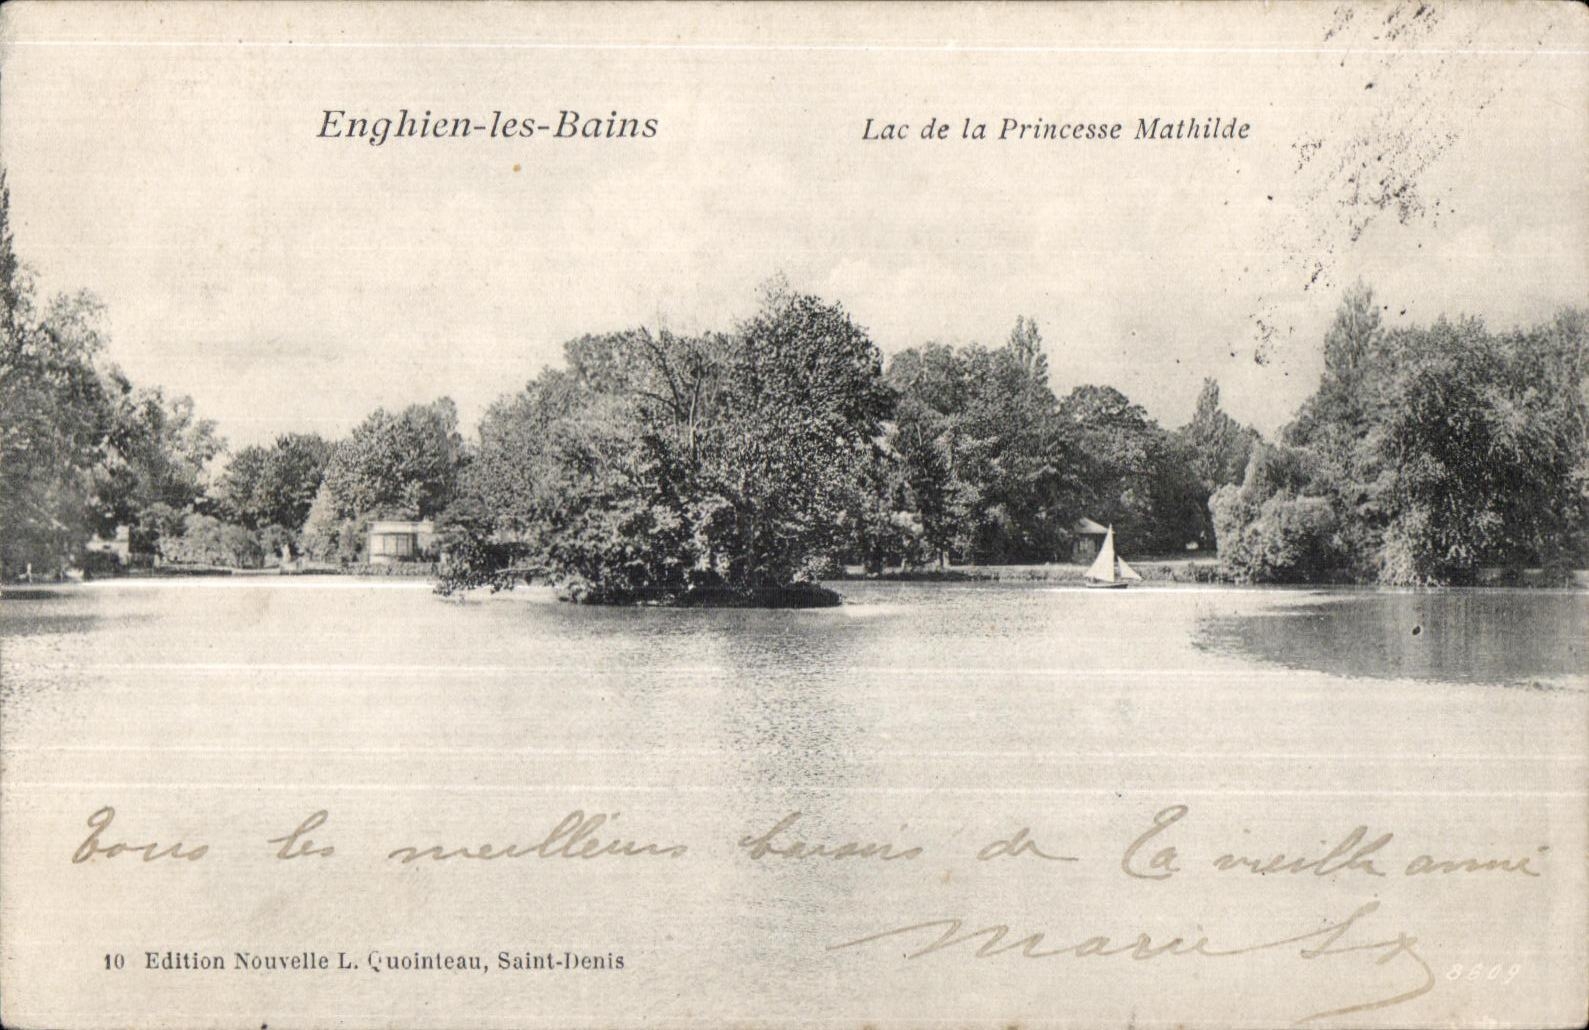 Enghien-les-Bains
Lac de la Princesse Mathilde
Tous les meilleurs baisers de
Ta vieille
Marie
10 Edition Nouvelle L. Quointeau, Saint-Denis
8609